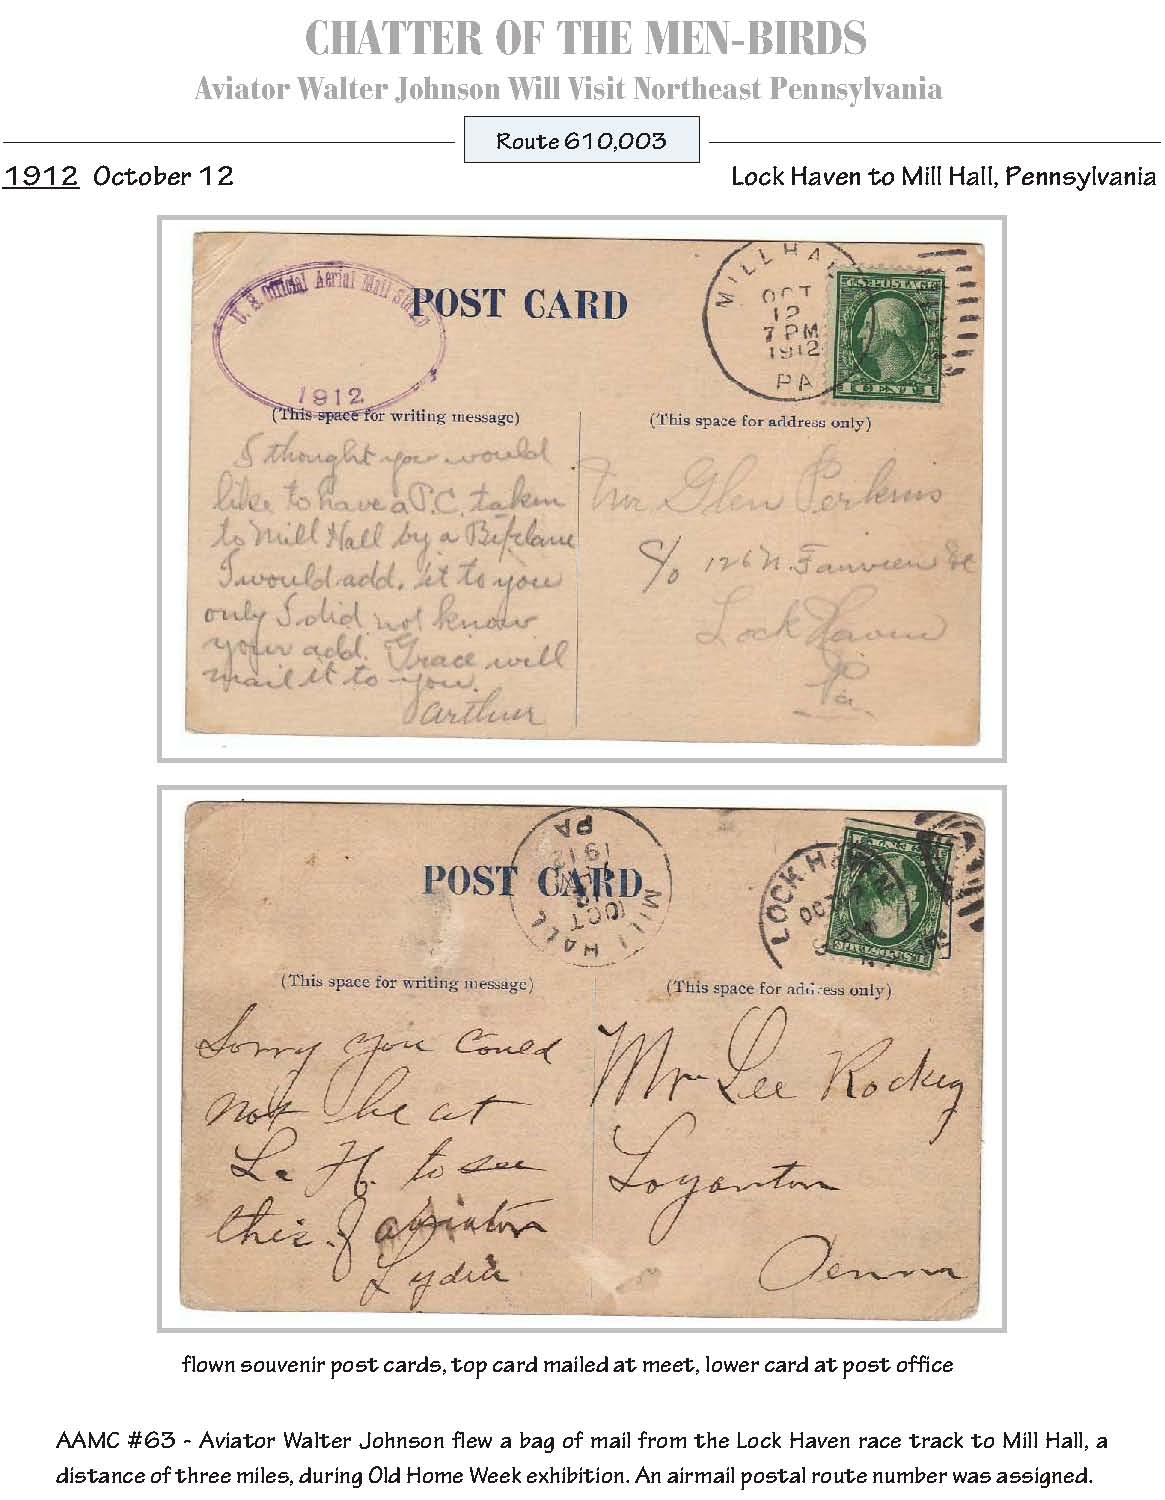 CHATTER OF THE MEN-BIRDS
Aviator Walter Johnson Will Visit Northeast Pennsylvania
Route 610,003
1912 October 12
Lock Haven to Mill Hall, Pennsylvania
U. S. Official Aerial Mail
1912
POST CARD
MILL HA
OCT
12
7 PM
1912
PA
U.S. POSTAGE
1 CENT 1
(This space for writing message)
(This space for address only)
I thought you would
like to have a P.C. taken
to Mill Hall by a Biplane
I would add. it to you
only I did not know
your add. Grace will
mail it to you.
Arthur
Mr Glen Perkins
c/o 126 N. Fairview St
Lock Haven
Pa
POST CARD
MILL HALL
OCT
12
1912
PA
LOCK HAVEN
OCT 12
(This space for writing message)
(This space for address only)
Sorry you could
not be at
L. H. to see
this aviator
Lydia
Mr Lee Rockey
Loganton
Penna
flown souvenir post cards, top card mailed at meet, lower card at post office
AAMC #63 - Aviator Walter Johnson flew a bag of mail from the Lock Haven race track to Mill Hall, a
distance of three miles, during Old Home Week exhibition. An airmail postal route number was assigned.